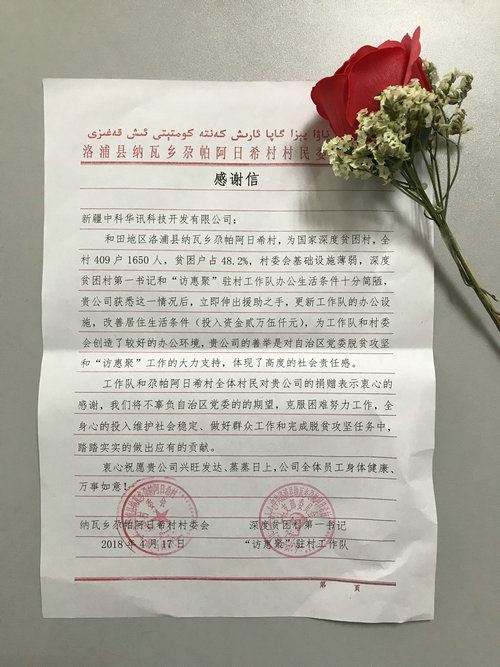 ناۋا يېزا گاپا ئارىش كەنتە كومىتېتى ئىش قەغىزى
洛浦县纳瓦乡尕帕阿日希村村民委
感谢信
新疆中科华讯科技开发有限公司：
和田地区洛浦县纳瓦乡尕帕阿日希村，为国家深度贫困村，全
村 409 户 1650 人，贫困户占 48.2%，村委会基础设施薄弱，深度
贫困村第一书记和“访惠聚”驻村工作队办公生活条件十分简陋，
贵公司获悉这一情况后，立即伸出援助之手，更新工作队的办公设
施，改善居住生活条件（投入资金贰万伍仟元），为工作队和村委
会创造了较好的办公环境，贵公司的善举是对自治区党委脱贫攻坚
和“访惠聚”工作的大力支持，体现了高度的社会责任感。
工作队和尕帕阿日希村全体村民对贵公司的捐赠表示衷心的
感谢，我们将不辜负自治区党委的的期望，克服困难努力工作，全
身心的投入维护社会稳定、做好群众工作和完成脱贫攻坚任务中，
踏踏实实的做出应有的贡献。
衷心祝愿贵公司兴旺发达、蒸蒸日上，公司全体员工身体健康、
万事如意！
纳瓦乡尕帕阿日希村村委会 深度贫困村第一书记
2018 年 4 月 17 日 “访惠聚”驻村工作队
第 页